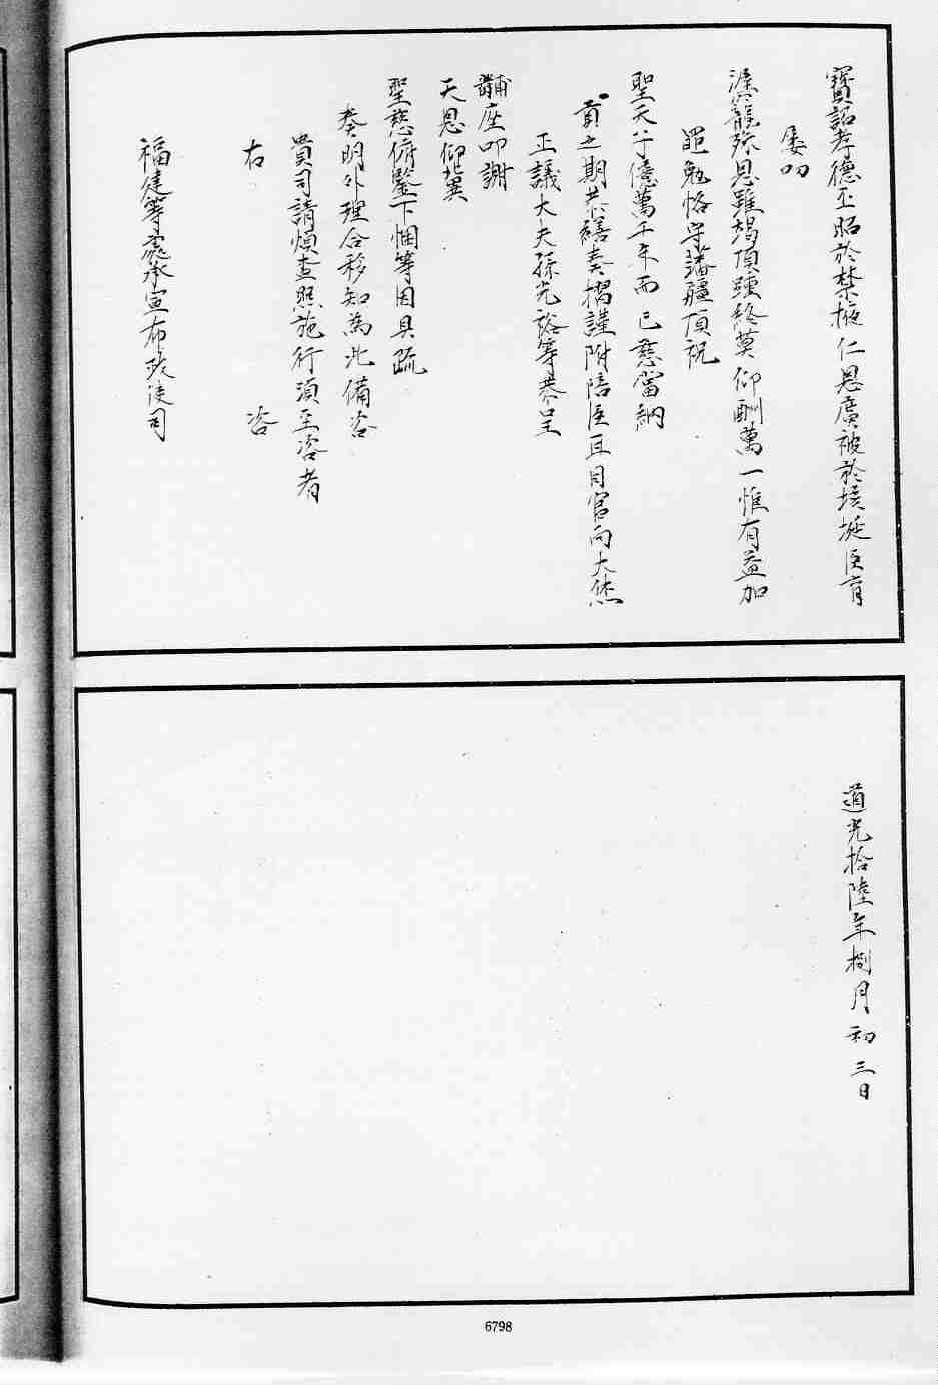 寶詔孝德丕昭於禁掖仁恩廣被於埏臣育
屢叨
寵殊恩雖竭頂踵終莫仰酬萬一惟有益加
黽勉恪守藩疆頂祝
聖天子億萬千年而已慈當納
貢之期恭繕奏摺謹附陪臣耳目官向大烋
正議大夫孫光裕等恭呈
黼座叩謝
天恩仰冀
聖慈俯鑒下悃等因具疏
奏明外理合移知為此備咨
貴司請煩查照施行須至咨者
右咨
福建等處承宣布政使司
道光拾陸年捌月初三日
6798